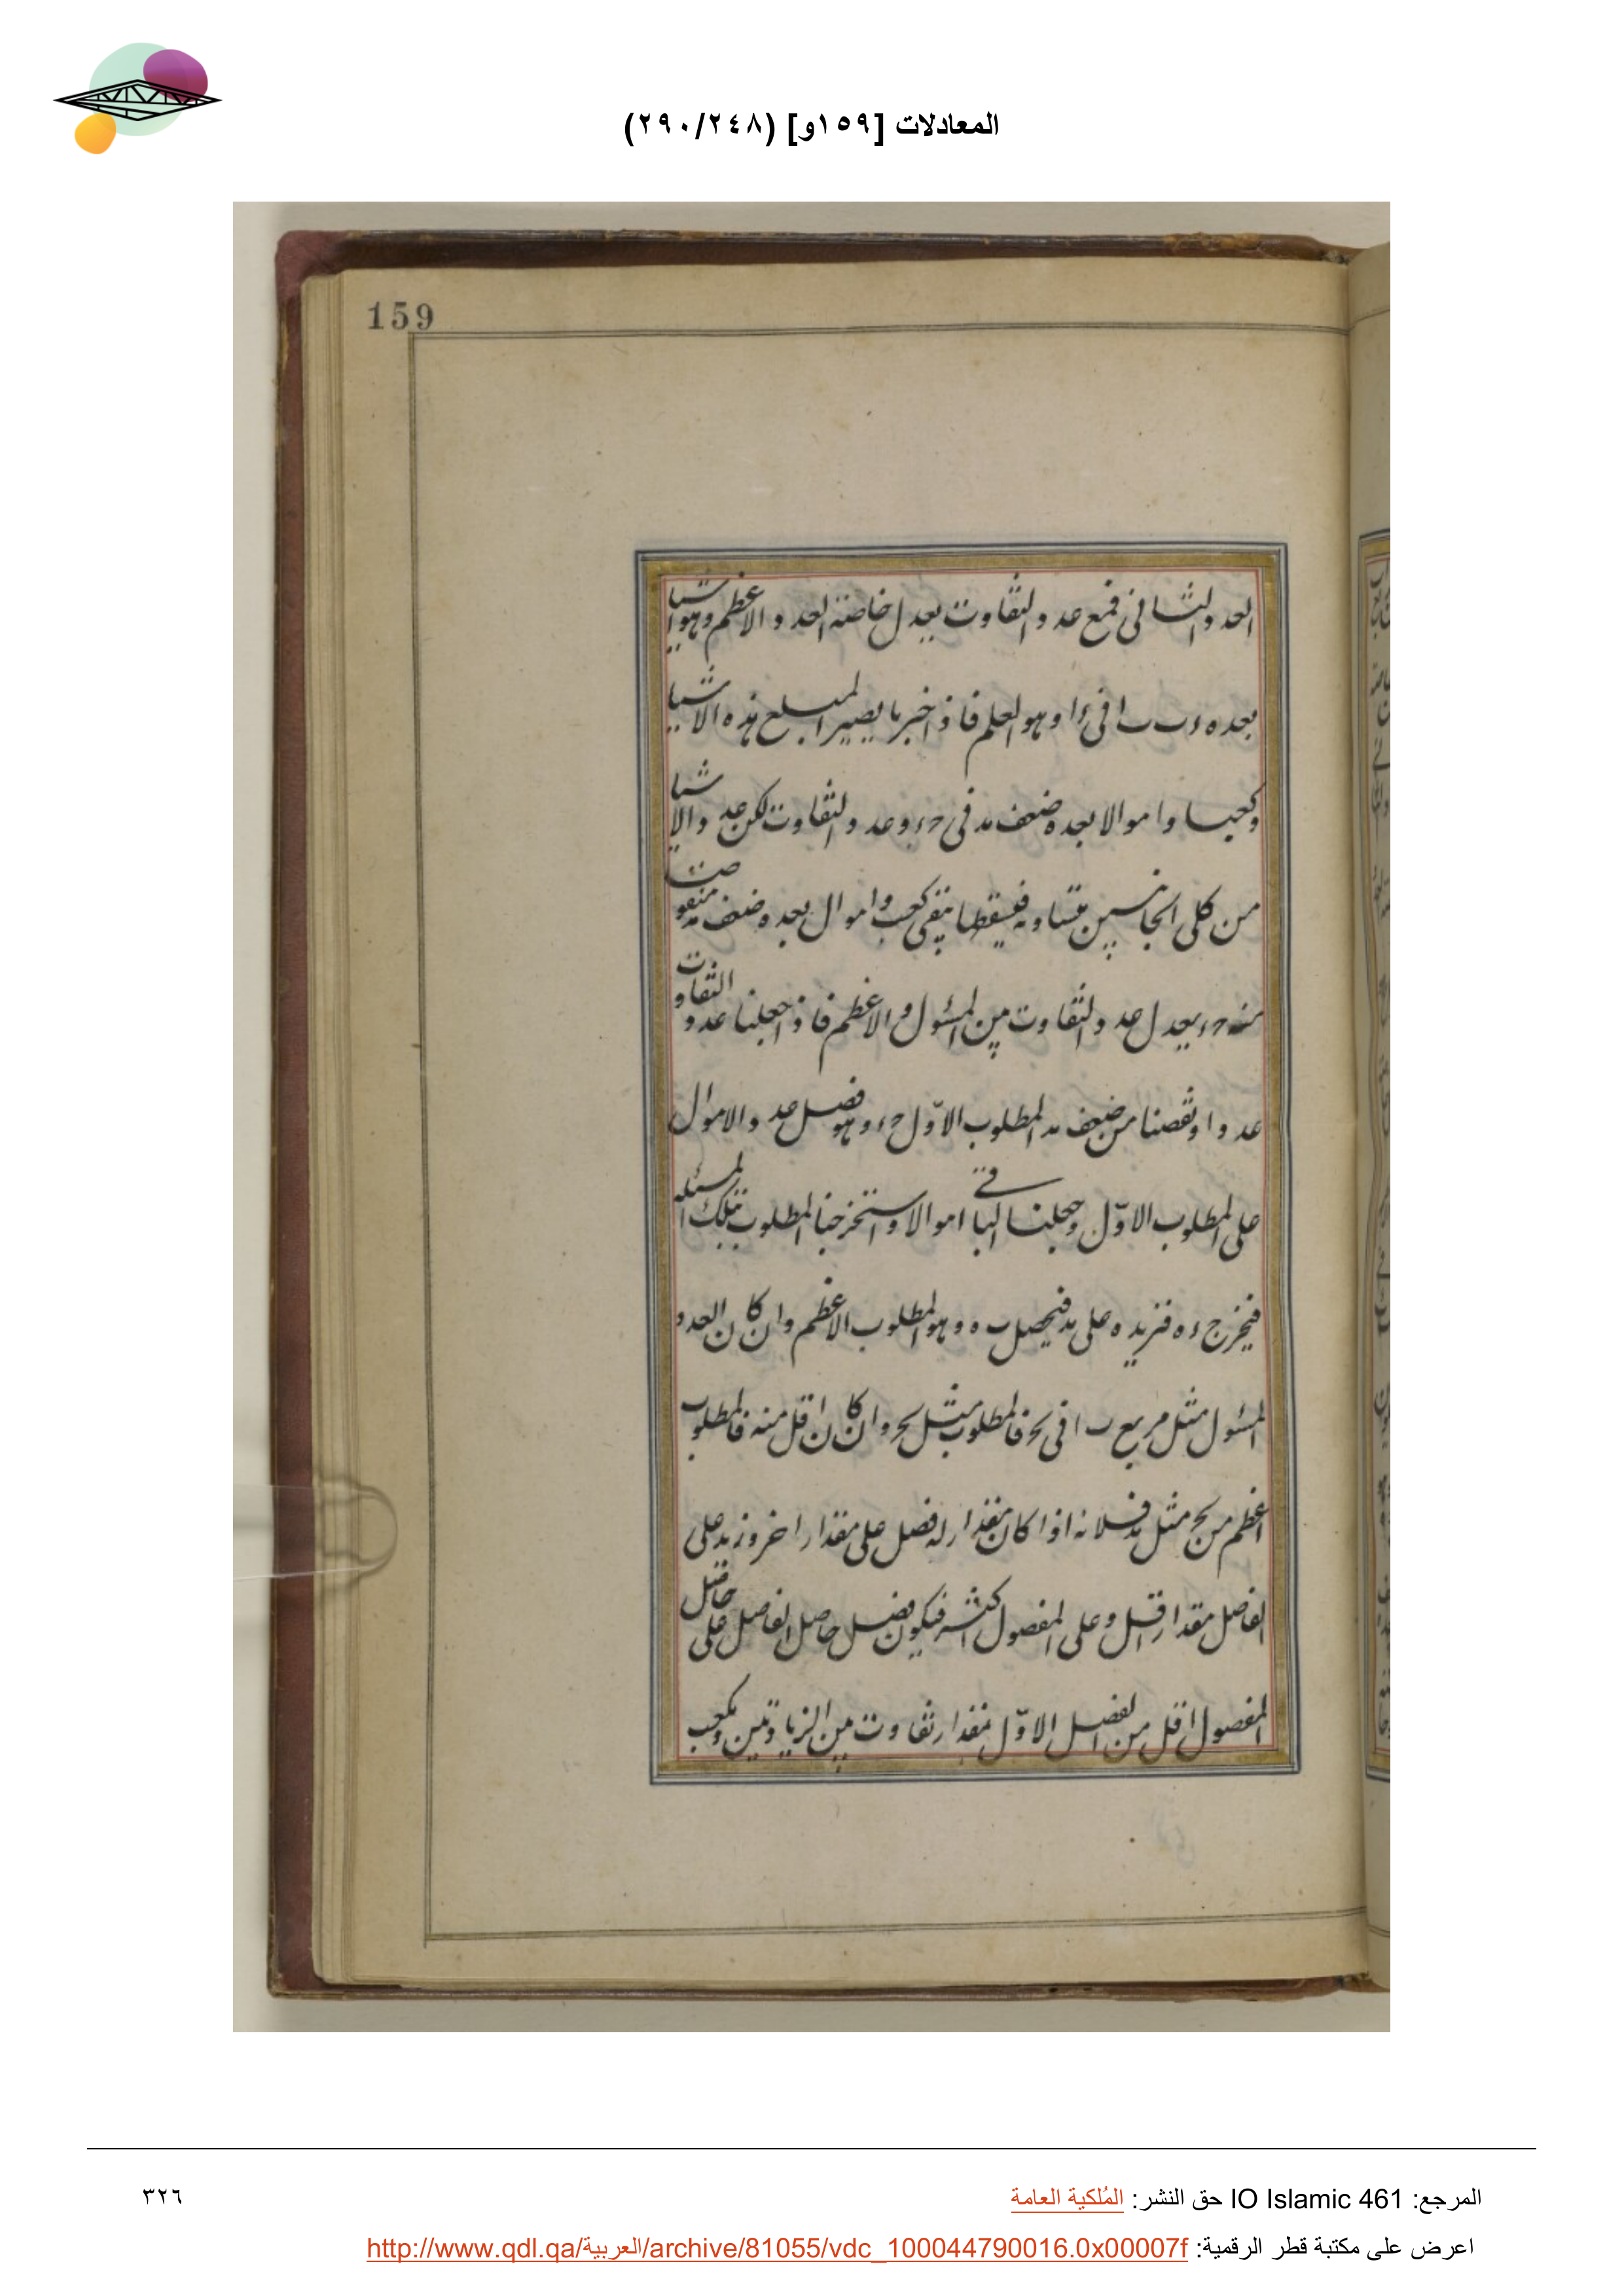 المعادلات [١٥٩و] (٢٩٠/٢٤٨)
159
العدد الثانی فمع عدد التفاوت یعدل خاصته العدد الاعظم وهو اشیا
بعده ء ب ب ا فی ء ا وهو العلم فاذا خبرنا یصیر المبلع هذه الاشیا
وکعبا واموالا بعده ضعف مد فی حء وعدد التفاوت لکن عدد الاشیا
من کلی الجانبین متساویه فیسقطها یبقی کعب واموال بعده ضعف مد منقوصة
منه حء یعدل عدد التفاوت بین المسئول والاعظم فاذا جعلنا عدد التفاوت
عددا ونقصنا من ضعف مد المطلوب الاوّل حء وهو فضل عدد الاموال
علی المطلوب الاوّل وجعلنا الباقی اموالا واستخرجنا المطلوب بتلک المسئله
فیخرج ء ه فنزیده علی مد فیحصل ب ه وهو المطلوب الاعظم وان کان العدد
المسئول مثل مربع ب ا فی بح فالمطلوب مثل بح وان کان اقل منه فالمطلوب
اعظم من بح مثل مد فلانه اذا کان مقدار له فضل علی مقدار اخر وزید علی
الفاضل مقدار اقل وعلی المفصول اکثر فیکون فضل حاصل الفاضل علی حاصل
المفصول اقل من الفضل الاوّل مقدار تفاوت بین الزیادتین ومکعب
المرجع: IO Islamic 461 حق النشر: المُلكية العامة
٣٢٦
اعرض على مكتبة قطر الرقمية: http://www.qdl.qa/العربية/archive/81055/vdc_100044790016.0x00007f